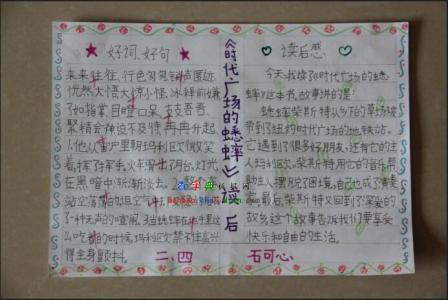 好词、好句
来来往往、行色匆匆 销声匿迹、
恍然大悟 大惊小怪、冰释前嫌
了如指掌、目瞪口呆、支支吾吾、
聚精会神 迫不及待 冉冉升起
人他从窗户里朝玛利欧微笑
着，挥了挥手。火车滑出了月台，灯光
在黑暗中渐渐淡去。
站空荡荡的
了一种无声的喧闹。
么吃着的时候，玛利欧禁不住高兴
得全身颤抖。
二、四
《时代广场的蟋蟀》读后
读后感
今天，我读了《时代广场的蟋
蟀》这本书，故事讲的是：
蟋蟀柴斯特从乡下的草场被
带到了纽约时代广场的地铁站。
它遇到了很多好朋友，还有它的主
人玛利欧。柴斯特用它的音乐帮
助主人摆脱了困境，自己也成了演奏
家。最后，柴斯特又回到了深爱的
故乡。这个故事告诉我们要享受
快乐和自由的生活。
石可心